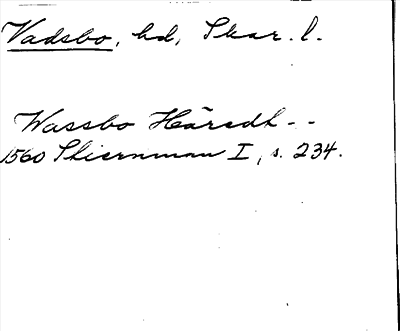 Vadsbo, hd, Skar. l.
Wassbo Häredh - -
1560 Stiernman I, s. 234.